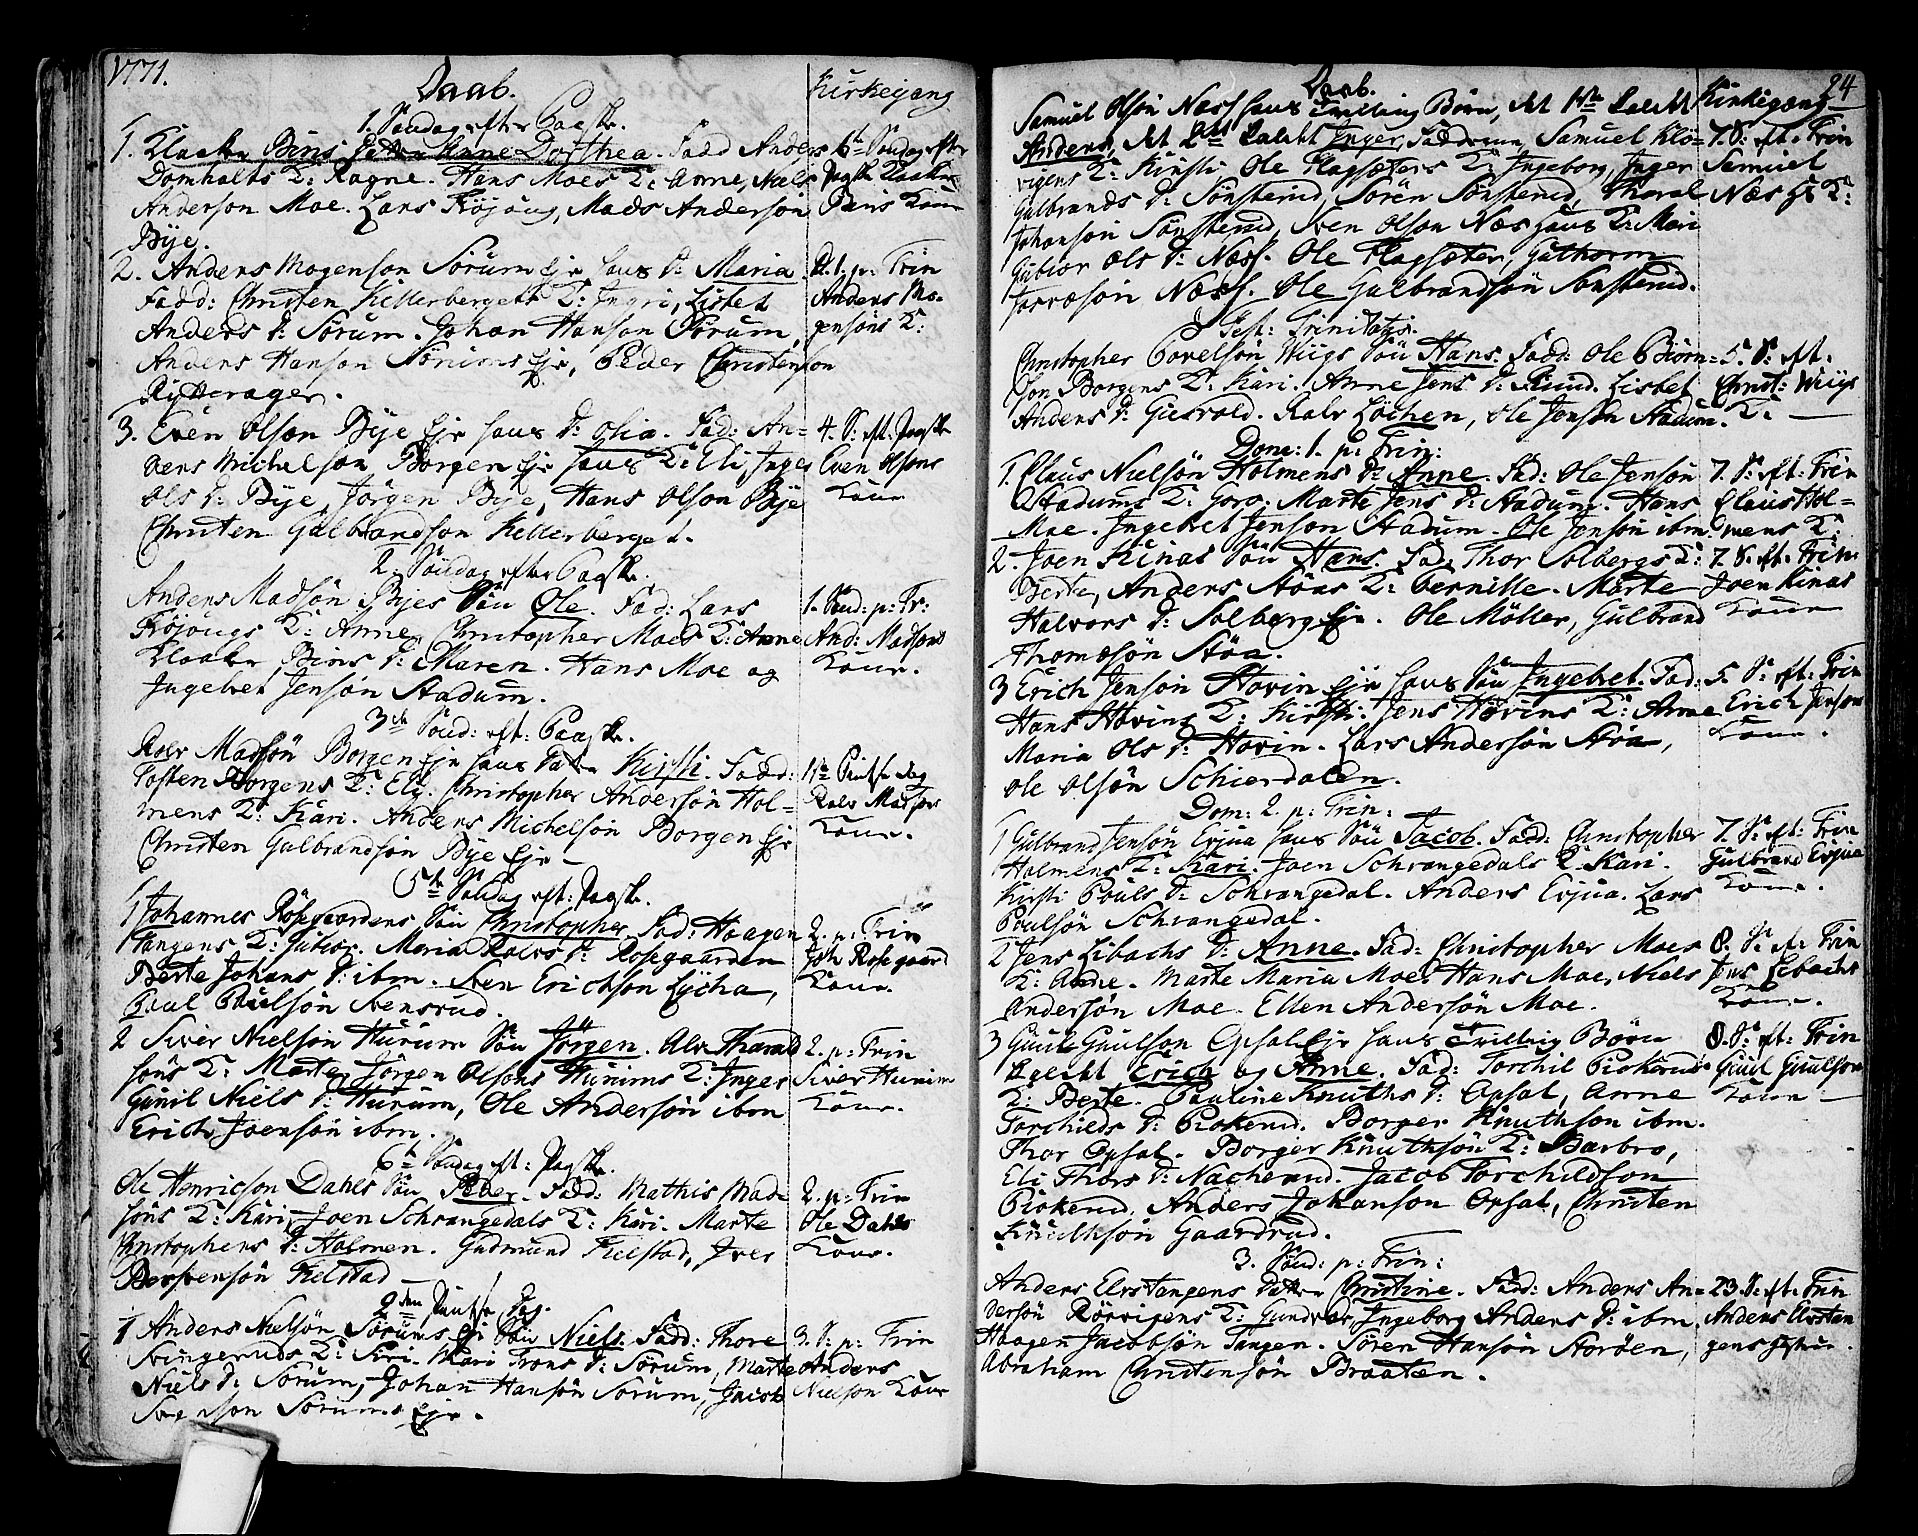 1771.
Daab.
Kirkegang
1. Søndag efter Paaske.
1. Klocker Biris Datter Anne Dorthea. Fadd Anders
Domholts K: Ragne. Hans Moes K: Anne, Niels
Anderson Moe. Lars Köjöug, Mads Anderson
Bÿe.
6te Søndag efter
Paaske Klocker
Biris Kone
2. Anders Mogenson Sörum Eje hans D: Maria
Fadd: Christen Kellerbergets K: Ingri, Lisbet
Anders D: Sörum. Johan Hanson Sörum,
Anders Hanson Sörums Eje, Peder Christenson
Rytterager.
D. 1. p: Trin
Anders Mo-
gensöns K:
3. Even Olson Bÿe Eje hans D: Olia. Fad: An-
ders Michelson, Borgen Eje hans K: Eli, Inger
Ols D: Bÿe, Jörgen Bÿe, Hans Olson Bÿe
Christen Gulbrandson Kellerberget.
4. S: eft: Paaske
Even Olsons
Kone
2. Söndag efter Paaske.
Anders Madsön Bÿes Sön Ole. Fad: Lars
Köjöugs K: Anne, Christopher Moes K: Anne
Klocker Biris D: Maren. Hans Moe og
Ingebret Jensön Stadum.
1. Sönd: p: Tr:
And: Madsons
Kone.
3de Sönd: eft: Paaske.
Rolv Madsön Borgen Eje hans Datter Kirsti. Fadd:
Tosten Borgens K: Elj. Christopher Andersön Hol-
mens K: Kari. Anders Michelsön Borgen Eje
Christen Gulbrandsön Bÿe Eje
1te Pintse dag
Rolv Madsöns
Kone.
5te Söndag eft: Paaske.
1 Johannes Rösegaardens Sön Christopher. Fad: Haagen
Tangens K: Gubior. Maria Rolvs D: Rosegaarden
Berte Johans D: ibm. Sven Erickson Lÿcha,
Poul Poulsön Svensrud.
2. p: Trin
Joh: Rosegaard
Kone.
2 Siver Nielsön Hurum Sön Jörgen. Alv Tharald
söns K: Marte, Jörgen Olsons Hurums K: Inger
Gunil Niels D: Hurum, Ole Andersön ibm
Erich Joensön ibm.
2. p: Trin
Siver Hurum
Kone.
6te Söndag eft: Paaske.
Ole Henricson Dahls Sön Peder. Fadd: Mathis Mad-
söns K: Kari, Joen Schrangedals K: Kari. Marte
Christophers D: Holmen. Gudmund Fielstad, Iver
Fielstad
2. p: Trin
Ole Dahls
Kone.
2den Pintse Dag.
1 Anders Nielsön Sörums Eje Sön Niels. Fadd: Thore
Svingeruds K: Siri. Mari Trons D: Sörum, Marte
Niels D: Sörum, Johan Hansön Sorum, Jacob
Sörums Eje.
3. S: p: Trin
Anders
Nielson Kone
24
Daab.
Kirkegang
Samuel Olsön Næss hans Tvilling Börn, det 1te kaldet
Anders, det 2det kaldet Inger, Fadderne, Samuel Klö-
vigens K: Kirsti, Ole Flagsæters K: Ingeborg, Inger
Gulbrands D: Sönsterud, Sören Sönsterud, Tharal
Johansön Sönsterud, Sven Olson Næs hans K: Mari
Gubior Ols D: Næss. Ole Flagsæter, Guthorm
Næss. Ole Gulbrandsön Sönsterud.
7. S: eft: Trin
Samuel
Næs Es K:
Fest: Trinitatis.
Christopher Povelsön Wiigs Sön Hans. Fadd: Ole Biörn-
son Borgens K: Kari. Anne Jens D: Ruud. Lisbet
Anders D: Giesvold. Rolv Löchen, Ole Jenson Stadum.
5. S: eft.
Christ: Wiigs
K:
Dom: 1. p: Trin:
1. Claus Nielsön Holmens D: Anne. Fad: Ole Jensön
Stadums K: Goro. Marte Jens D: Stadum. Hans
Moe. Ingebret Jenson Stadum. Ole Jensön ibm
7. S: eft: Trin
Claus Hol-
mens K:
2. Joen Kinas Sön Hans. Fad, Thor Solbergs K:
Berte, Anders Stöas K: Pernille. Marte
Halvors D: Solberg Eje. Ole Möller, Gulbrand
Thomæsön Stöa.
7. S. eft: Trin
Joen Kinas
Kone
3 Erich Jensön Hovin Eje hans Sön Ingebret. Fad:
Hans Hovins K: Kirsti. Jens Hovins K: Anne
Maria Ols D: Hovin. Lars Andersön Stöa,
Ole Olsön Schierdalen.
5. S: eft: Trin
Erich Jensons
Kone.
Dom: 2. p: Trin:
1 Gulbrand Jensön Evjua hans Sön Jacob. Fadd: Christopher
Holmens K: Kari. Joen Schrangedals K: Kari.
Kirsti Pouls D: Schrangedal. Anders Evjua. Lars
Poulsön Schrangedal.
7. S: eft: Trin
Gulbrand Evjua
Kone.
2 Jens Libachs D: Anne. Fad: Christopher Moes
K: Anne. Marte Maria Moe. Hans Moe, Niels
Andersön Moe. Ellen Andersön Moe.
8. S: eft: Trin
Jens Libachs
Kone.
3 Guul Guulson Opsal Eje hans Tvilling Börn
kaldet Erich og Anne. Fad: Torchil Piokerud
K: Berte. Pauline Knuths D: Opsal, Anne
Torchilds D: Piokerud. Borger Knuthson ibm.
Thor Opsal. Borger Knuthsön K: Barbro,
Eli Thors D: Nacherud. Jacob Torchildson
Piokerud, Anders Johanson Opsal, Christen
Knuthsön Gaardrud.
8. S: eft: Trin
Guul Guulson
Kone
3. Sönd: p: Trin:
Anders Elvstangens Datter Christine. Fad: Anders An-
dersön Rörvigens K: Gundvor, Ingeborg Anders D: ibm
Haagen Jacobsön Tangen. Sören Hansön Storöen,
Abraham Christensön Braaten.
23. S: eft: Trin
Anders Elvstan
gens Hustru.